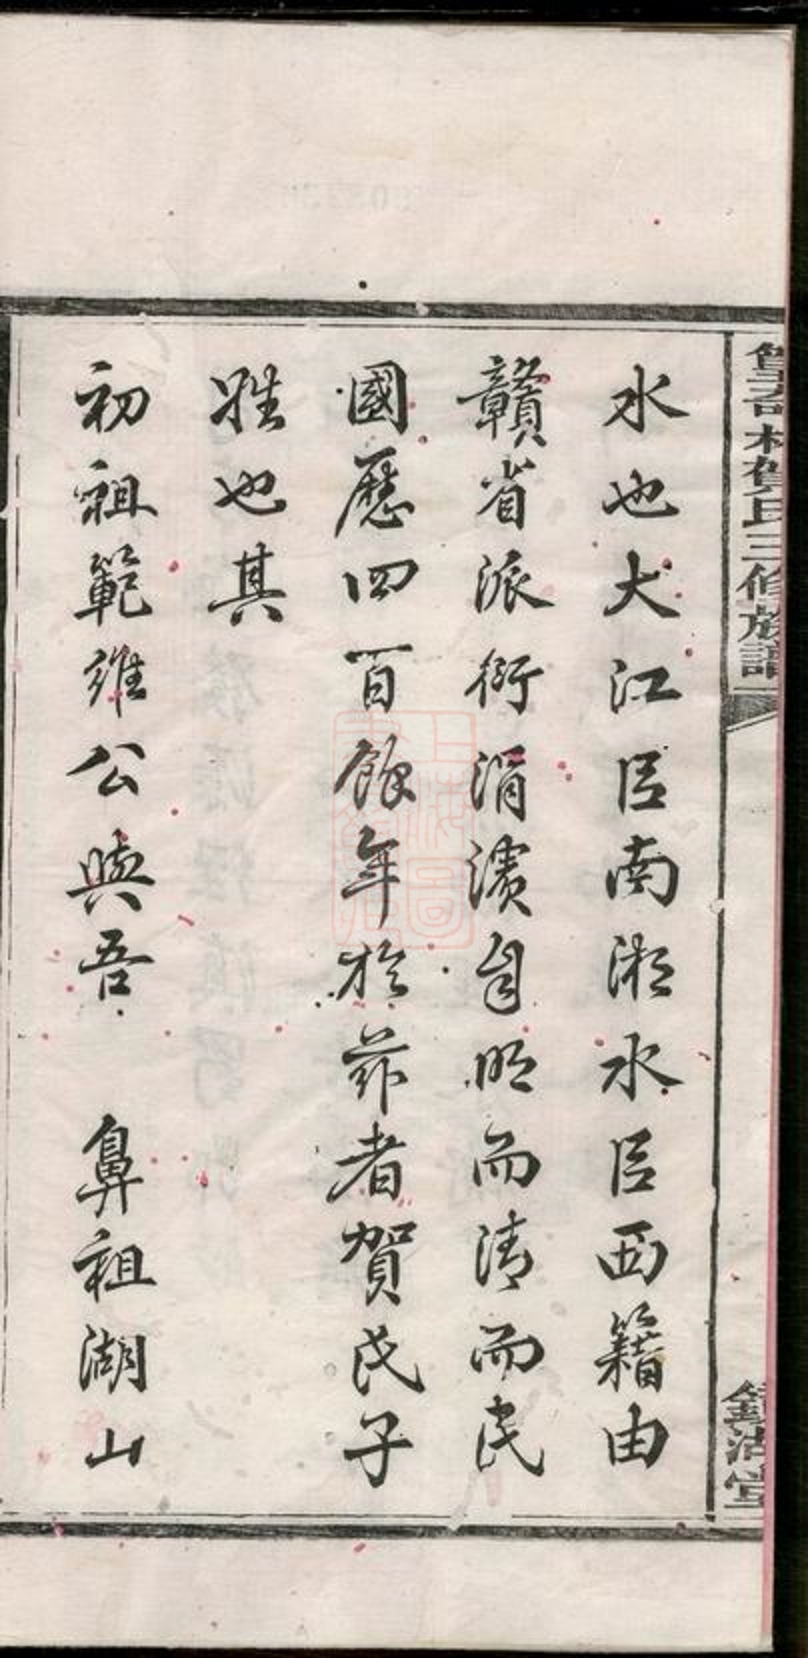 水也大江居南湘水居西籍由
贛省派衍涓濱自明而清而民
國歷四百餘年於茲者賀氏子
姓也其
初祖範維公與吾 鼻祖湖山
賀氏三修族譜
鑑湖堂